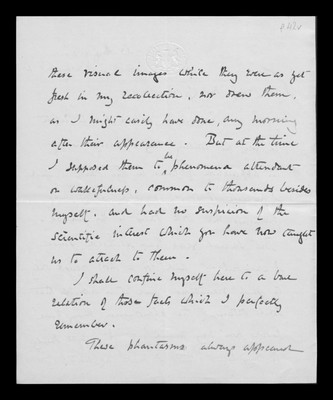 these visual images while they were as yet
fresh in my recollection, nor drew them,
as I might easily have done, any morning
after their appearance. But at the time
I supposed them to be phenomena attendant
on wakefulness, common to thousands besides
myself, and had no suspicion of the
scientific interest which you have now taught
us to attach to them.
I shall confine myself here to a true
relation of those facts which I perfectly
remember.
These phantasms always appeared